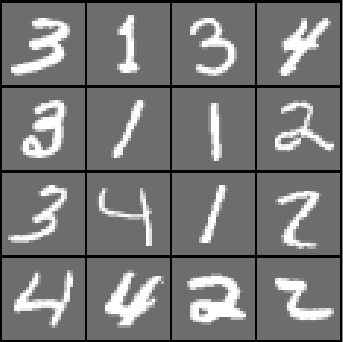 3 1 3 4
3 1 1 2
3 4 1 2
4 4 2 2